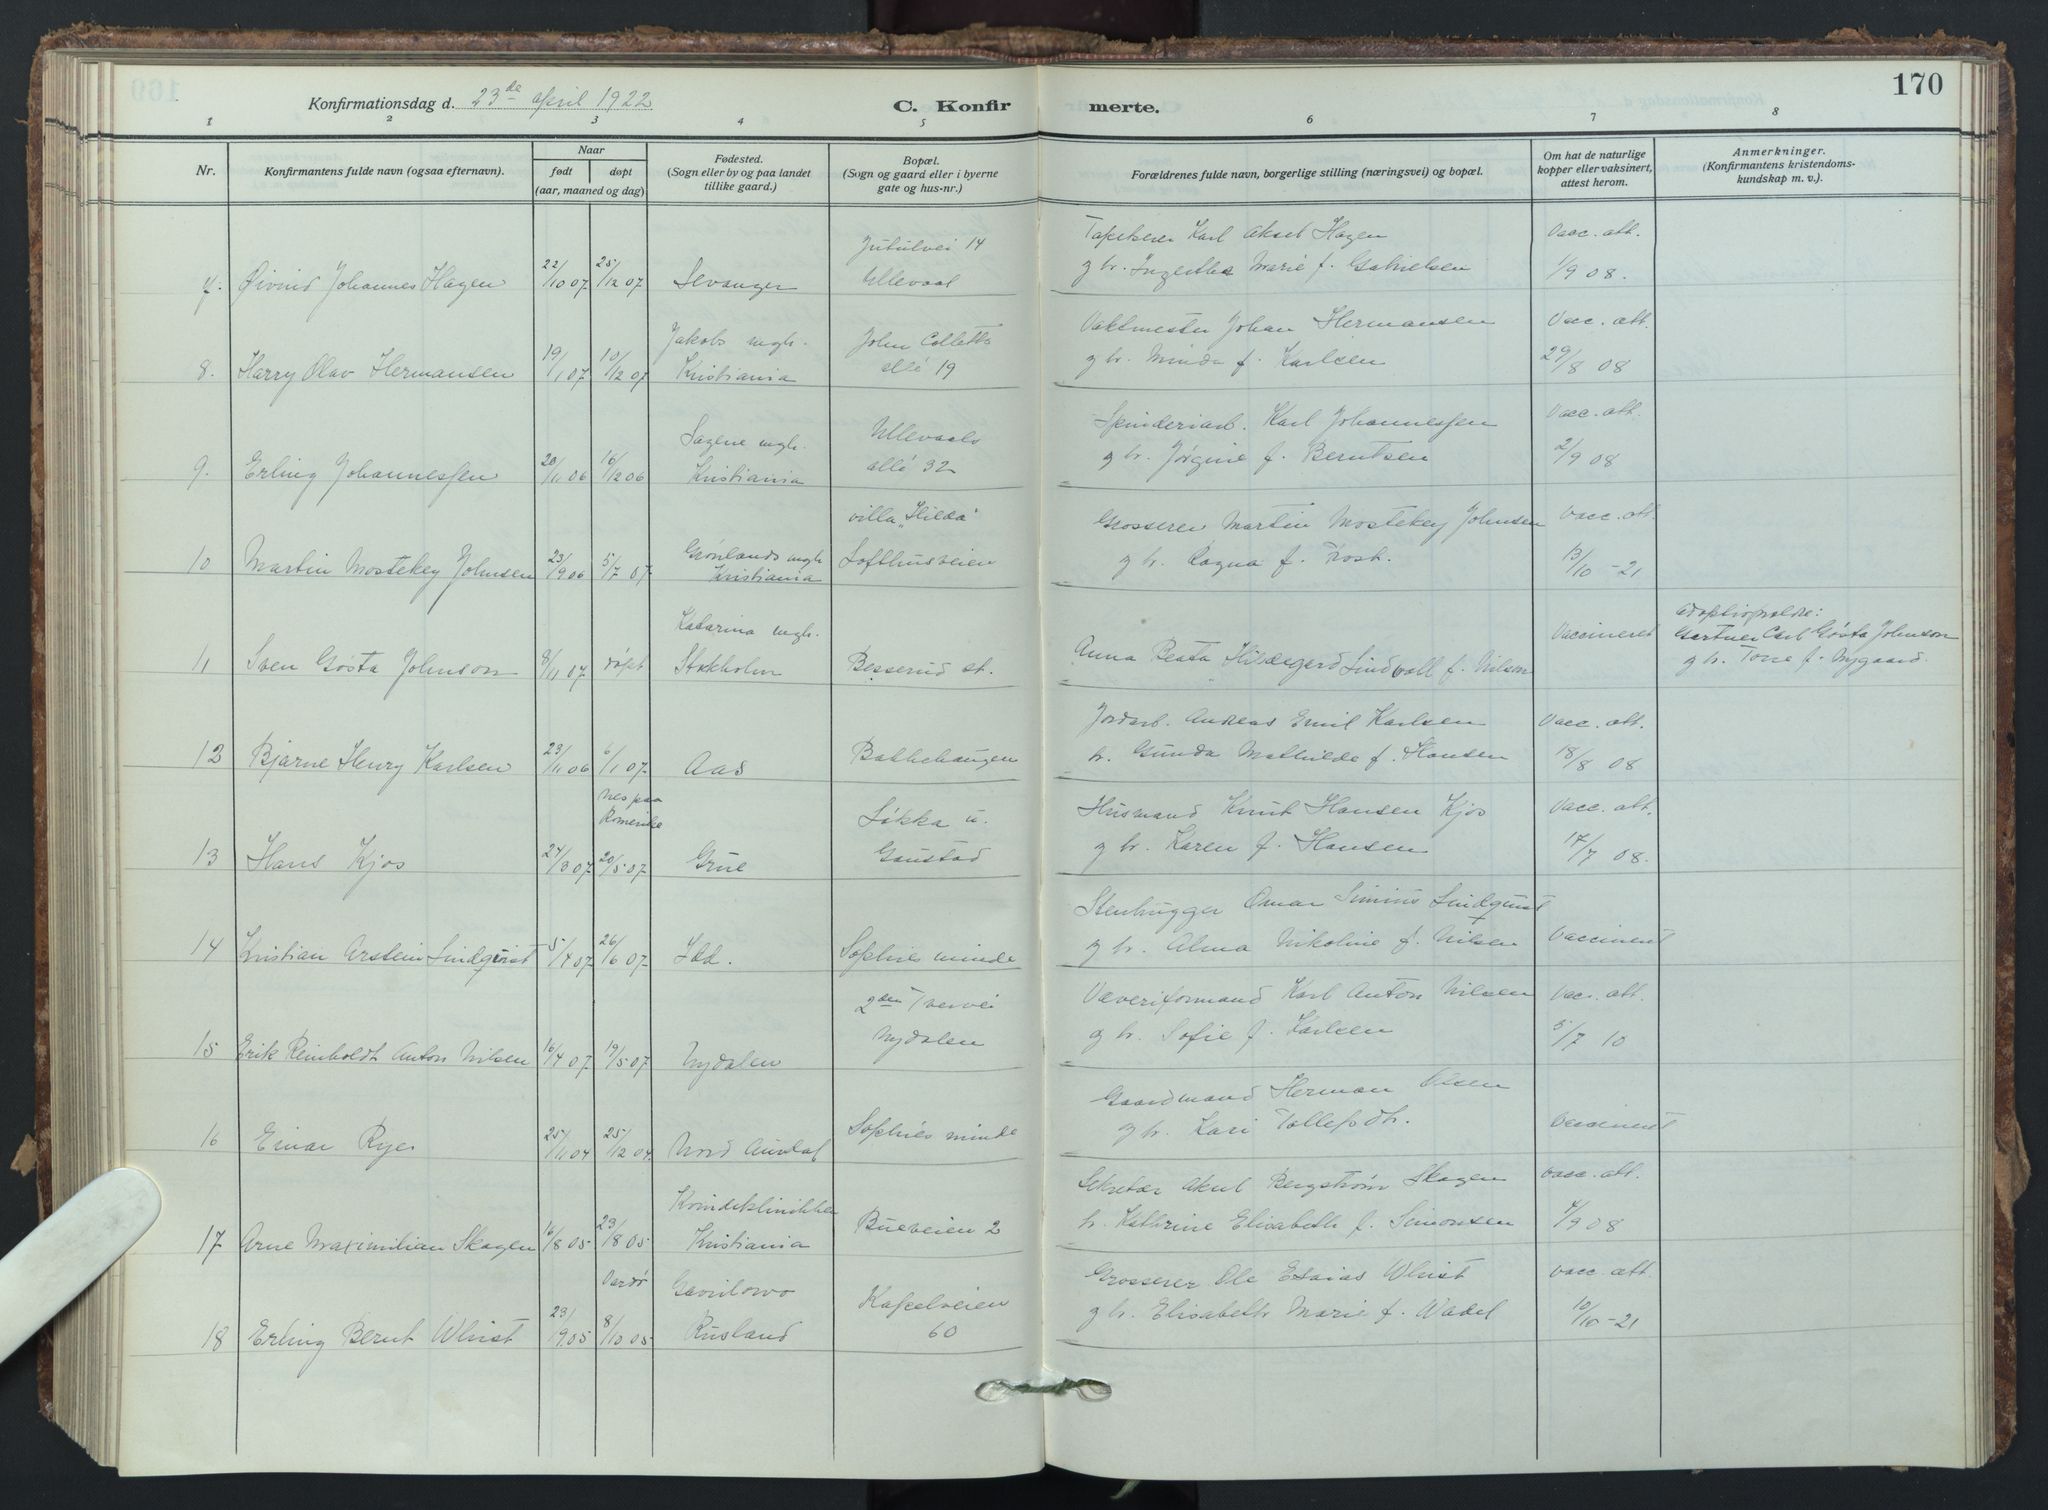 170
Konfirmationsdag d. 23de april 1922
C. Konfirmerte.
1 2 3 4 5 6 7 8
Nr.
Konfirmantens fulde navn (ogsaa efternavn).
Naar
født døpt
(aar, maaned og dag)
Fødested.
(Sogn eller by og paa landet
tillike gaard.)
Bopæl.
(Sogn og gaard eller i byerne
gate og hus-nr.)
Forældrenes fulde navn, borgerlige stilling (næringsvei) og bopæl.
Om hat de naturlige
kopper eller vaksinert,
attest herom.
Anmerkninger.
(Konfirmantens kristendoms-
kundskap m. v.).
7. Øivind Johannes Hagen 22/10 07 25/12 07 Levanger
Jutulvei 14
Ullevaal
Tapetserer Karl Aksel Hagen
g hr. Marie f. Gabrielsen
Vacc. att.
1/9 08.
8. Harry Olav Hermansen 19/1 07 10/2 07
Jakobs mgh.
Kristiania
John Colletts
allé 19
Vaktmester Johan Hermansen
g hr. Minda f. Karlsen
Vacc. att.
29/8 08
9. Erling Johannessen 20/11 06 16/12 06
Sagene mgh.
Kristiania
Ullevaals
allé 32
Spinderiarb. Karl Johannessen
g hr. Jørgine f. Berntsen
Vacc. att.
2/9 08
10 Martin Mostekey Johnsen 23/9 06 5/7 07
Grønlands mgh
Kristiania
villa "Hilda"
Lofthusveien
Grosserer Martin Mostekey Johnsen
g hr. Ragna f. Frost.
Vacc. att.
13/10 -21
11 Sven Gøsta Johnson 8/11 07 døpt
Katarina mgh.
Stokholm
Besserud st.
Anna Beata Hildegard Lindvall f. Nilson
Vaccineret
Adoptivforeldre:
Gartner Carl Gøsta Johnson
g hr. Tone f. Nygaard.
12 Bjarne Henry Karlsen 23/11 06 6/1 07 Aas Bakkehaugen
Jordarb. Andreas Emil Karlsen
h. Gunda Mathilde f. Hansen
Vacc. att.
18/8 08
13 Hans Kjos 24/3 07 20/5 07
Nes paa
Romerike
Grue
Løkka u.
Gaustad
Husmand Knut Hansen Kjos
g hr. Karen f. Hansen
Vacc. att.
17/7 08.
14 Kristian Arstein Lindqvist 5/4 07 26/6 07 Idd. Sophies minde
Stenhugger Omar Simius Lindquist
g hr. Alma Nikoline f. Nilsen
Vaccineret
15 Erik Reinholdt Anton Nilsen 16/4 07 19/5 07 Nydalen
2den Tvervei
Nydalen
Væveriformand Karl Anton Nilsen
g hr. Sofie f. Karlsen
Vacc. att.
5/7 10
16 Einar Rye 25/11 04 25/12 04. Nord Aurdal Sophies minde
Gaardmand Herman Olsen
g hr. Kari Tollefsdtr.
Vaccineret
17 Arne Maximilian Skagen 16/8 05 23/8 05
Kvindeklinikken
Kristiania
Bueveien 2
Sekretær Aksel Bergstrøm Skagen
h. Kathrine Elisabeth f. Simonsen
Vacc. att.
4/9 08
18 Erling Bernt Whist 23/9 05 8/10 05
Vardø
Gavrilowo
Rusland
Kapelveien
60
Grosserer Ole Esaias Whist
g hr. Elisabeth Marie f. Wadel
Vacc att.
10/10 -21